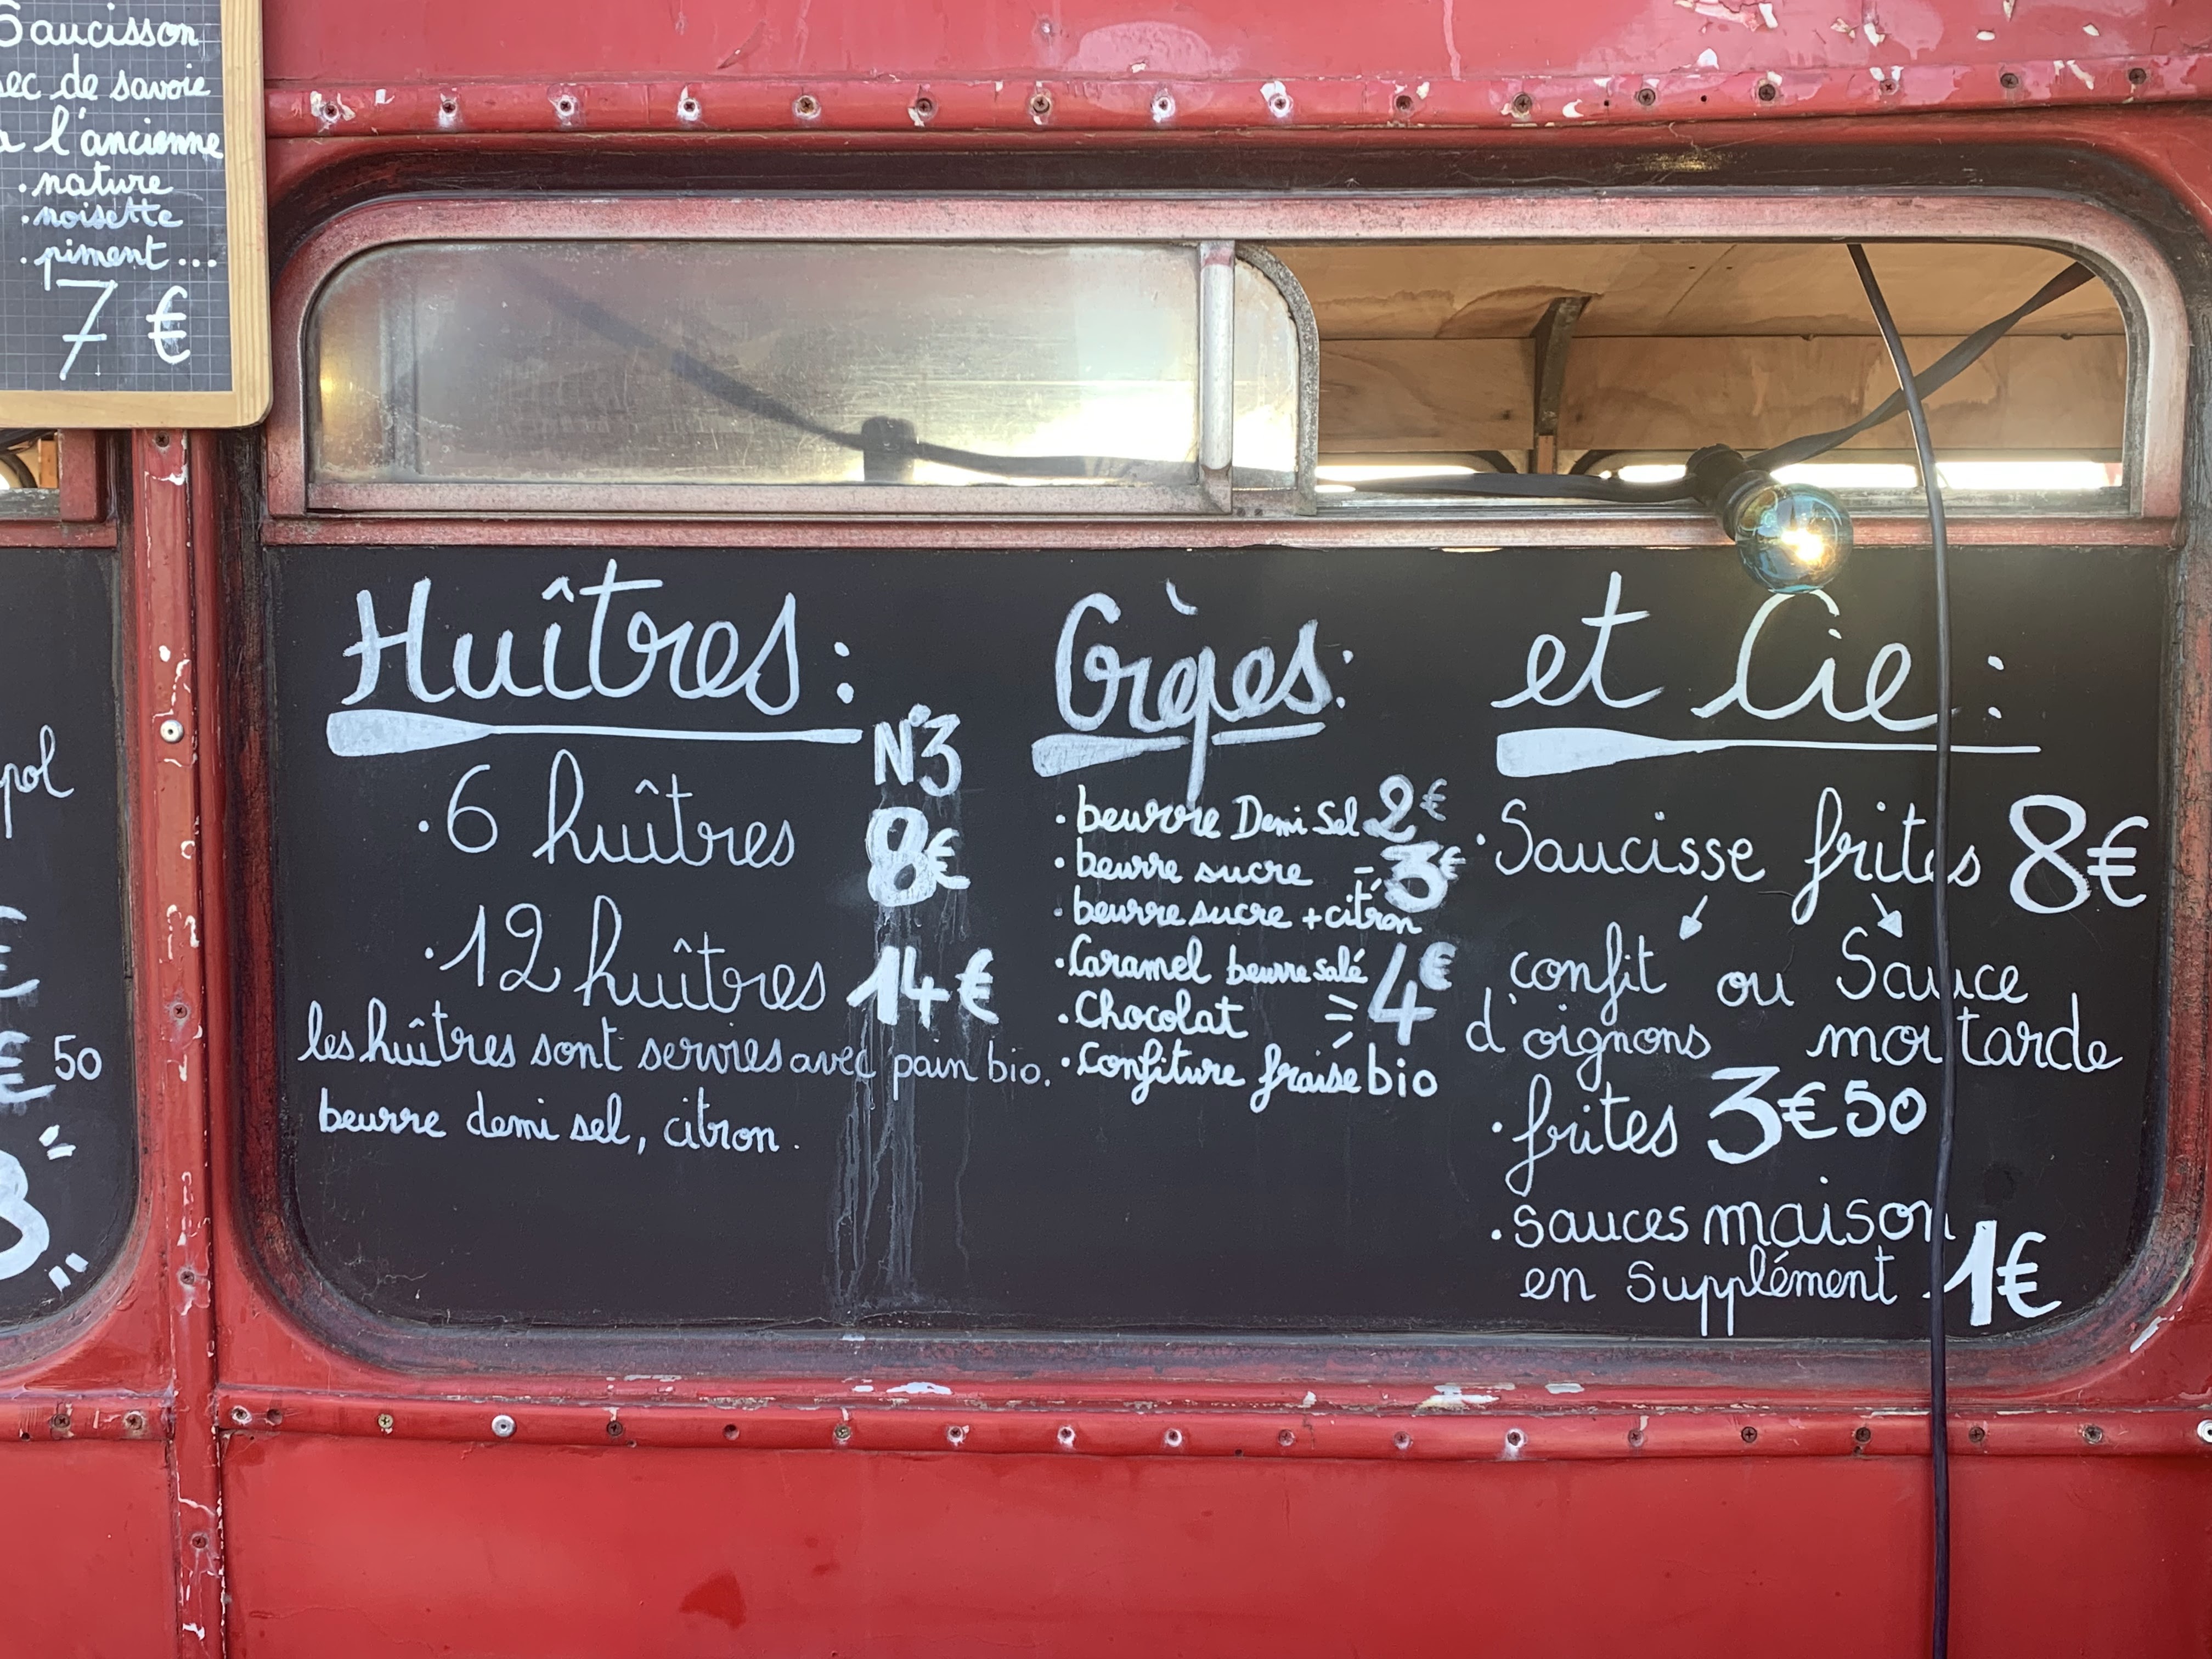 Saucisson
sec de savoie
à l'ancienne
. nature
. noisette
. piment...
7 €
€ 50
Huîtres :
N°3
. 6 huîtres 8€
. 12 huîtres 14€
les huîtres sont servies avec pain bio.
beurre demi sel, citron.
Crèpes :
. beurre Demi Sel 2€
. beurre sucre - 3€
. beurre sucre + citron
. Caramel beurre salé 4€
. Chocolat
. Confiture fraise bio
et Cie :
. Saucisse frites 8€
confit ou Sauce
d'oignons moutarde
. frites 3€50
. sauces maison
en supplément 1€